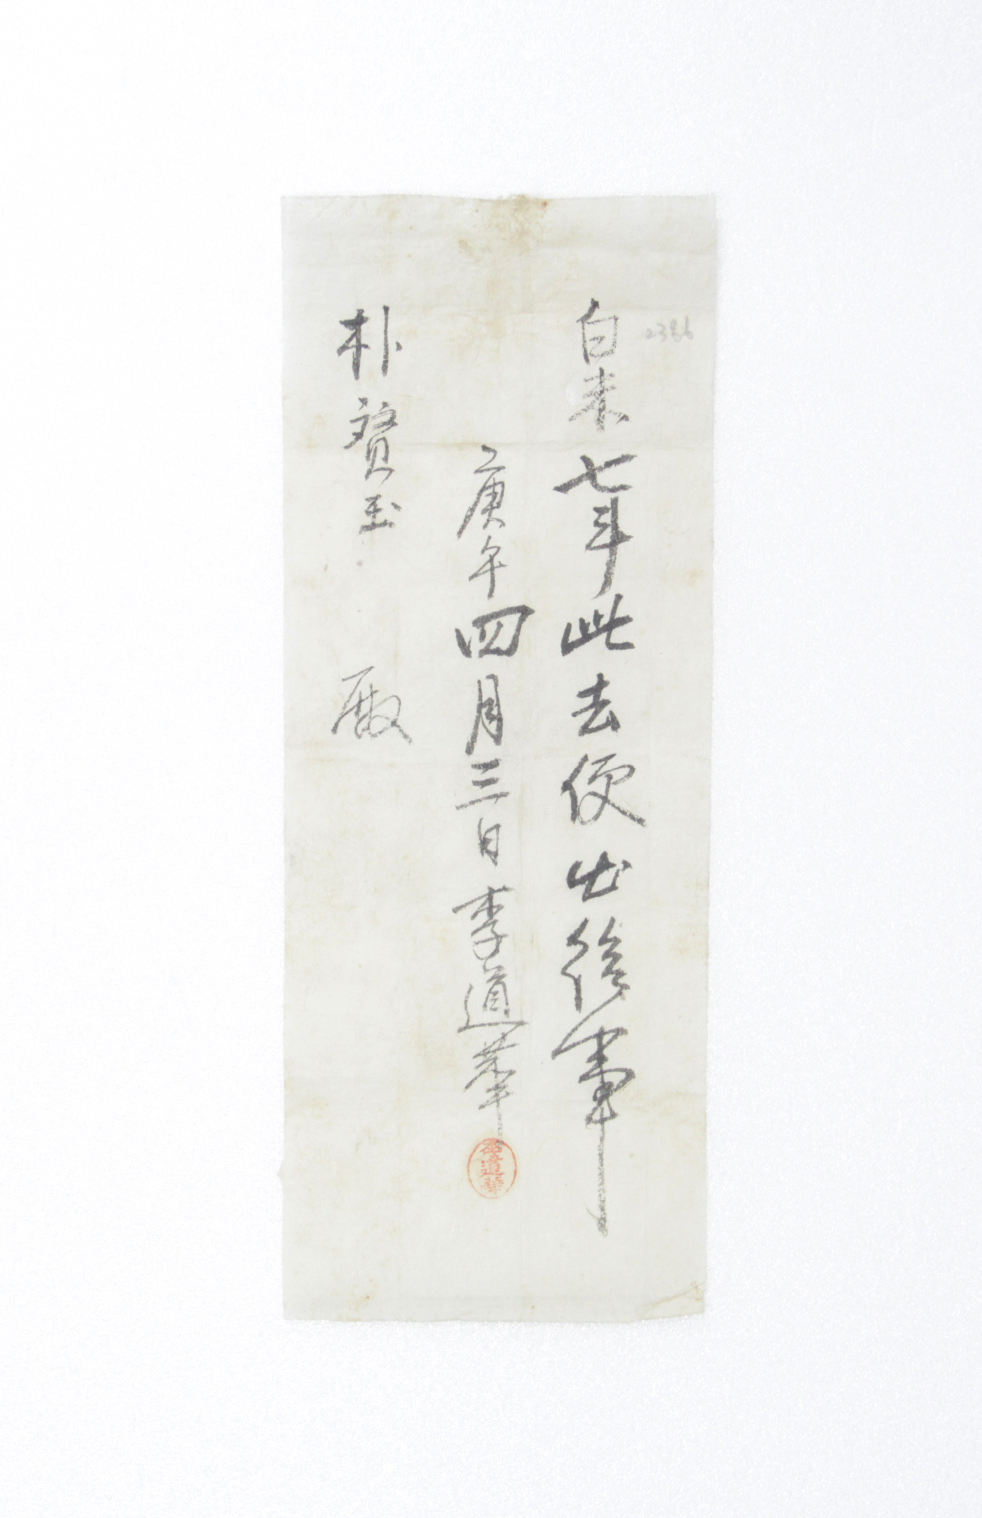 2386
白米七斗此去便出給事
庚午四月三日李道華
朴贇玉 殿
李道華